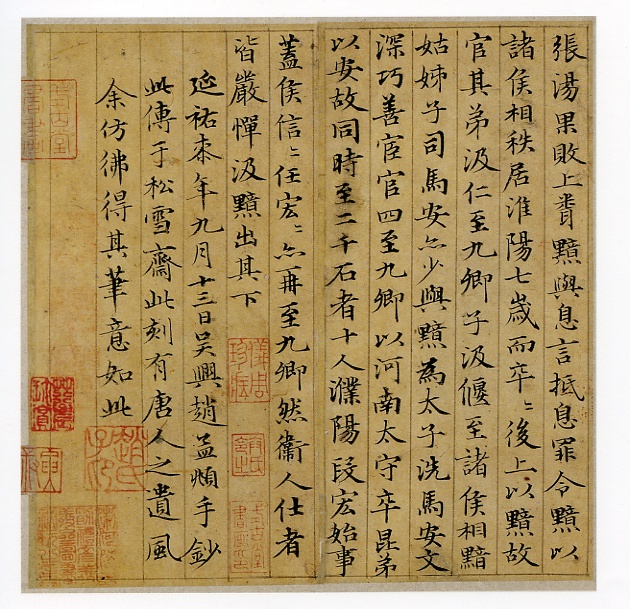 張湯果敗上聞黯與息言抵息罪令黯以
諸侯相秩居淮陽七歲而卒〻後上以黯故
官其弟汲仁至九卿子汲偃至諸侯相黯
姑姊子司馬安亦少與黯為太子洗馬安文
深巧善宦官四至九卿以河南太守卒昆弟
以安故同時至二千石者十人濮陽段宏始事
蓋侯信〻任宏〻亦再至九卿然衞人仕者
皆嚴憚汲黯出其下
延祐柒年九月十三日吳興趙孟頫手鈔
此傳于松雪齋此刻有唐人之遺風
余仿彿得其筆意如此
趙氏子昂